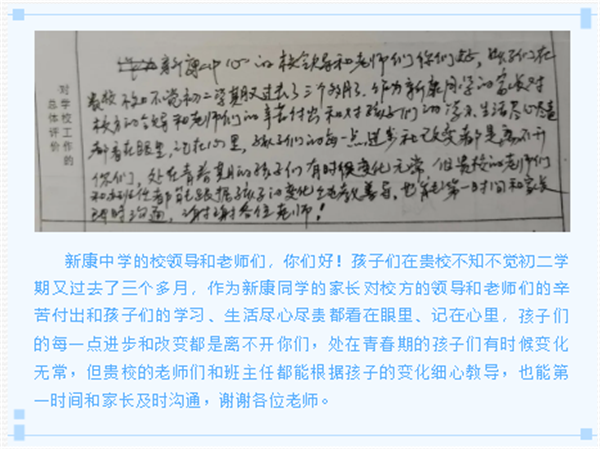 对学校工作的
总体评价
新康中的校领导和老师们你们好,孩子们在
贵校不知不觉初二学期又过去了三个多月了.作为新康同学的家长对
校方的领导和老师们的辛苦付出和对孩子们的学习生活尽心尽责
都看在眼里,记在心里,孩子们的每一点进步和改变都是离不开
你们,处在青春期的孩子们有时候变化无常,但贵校的老师们
和班主任都能跟据孩子的变化教导,也能第一时间和家长
及时沟通,谢谢各位老师!
新康中学的校领导和老师们，你们好！孩子们在贵校不知不觉初二学
期又过去了三个多月，作为新康同学的家长对校方的领导和老师们的辛
苦付出和孩子们的学习、生活尽心尽贵都看在眼里、记在心里，孩子们
的每一点进步和改变都是离不开你们，处在青春期的孩子们有时候变化
无常，但贵校的老师们和班主任都能根据孩子的变化细心教导，也能第
一时间和家长及时沟通，谢谢各位老师。